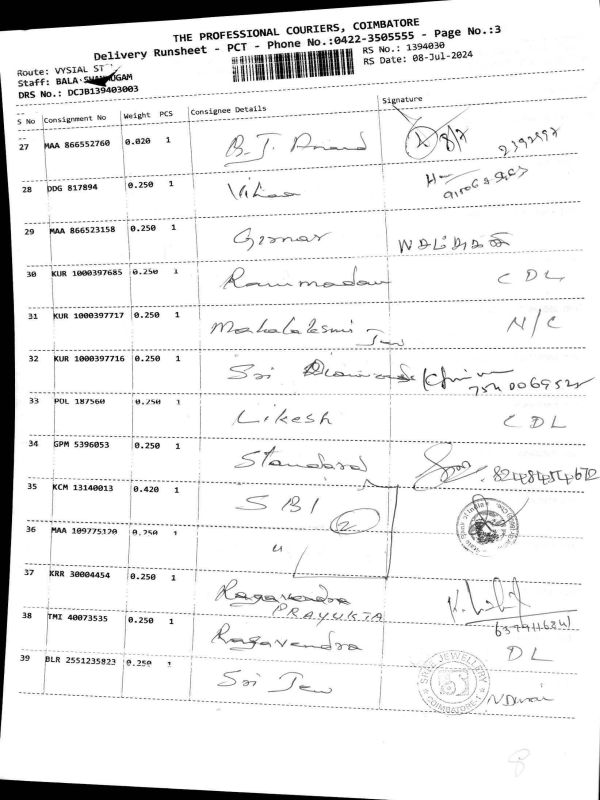 THE PROFESSIONAL COURIERS, COIMBATORE
Delivery Runsheet - PCT - Phone No.:0422-3505555 - Page No.:3
Route: VYSIAL ST
RS No.: 1394030
Staff: BALA SHANMUGAM
RS Date: 08-Jul-2024
DRS No.: DCJB139403003
S No Consignment No Weight PCS Consignee Details Signature
27 MAA 866552760 0.020 1 B. J. Anand 2 8/7
28 DDG 817894 0.250 1
29 MAA 866523158 0.250 1
30 KUR 1000397685 0.250 1 Rammadav CDL
31 KUR 1000397717 0.250 1 Mahalakshmi Jew N/C
32 KUR 1000397716 0.250 1 Sri
33 POL 187560 0.250 1 Likesh CDL
34 GPM 5396053 0.250 1 Standard
35 KCM 13140013 0.420 1 SBI 2
36 MAA 109775120 0.250 1 "
37 KRR 30004454 0.250 1 Ragavendra
PRAYUKTA
38 TMI 40073535 0.250 1 Ragavendra DL
39 BLR 2551235823 0.250 1 Sri Jew
JEWELLERY
COIMBATORE-1
8